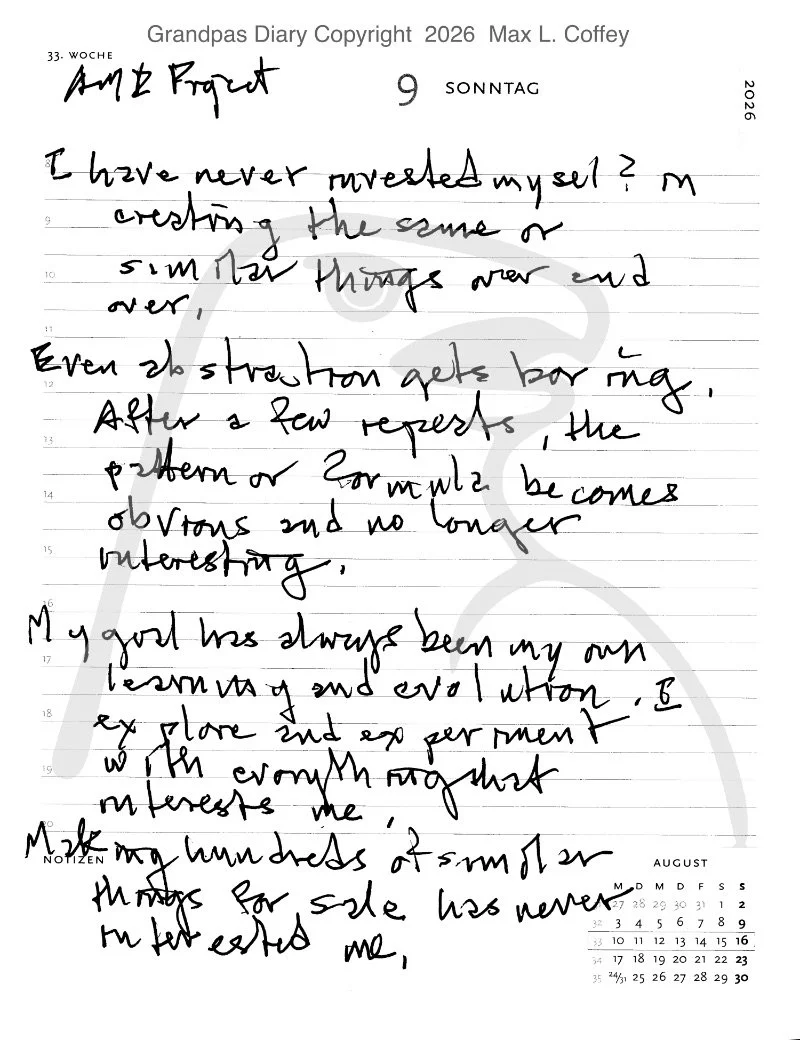 Grandpas Diary Copyright 2026 Max L. Coffey
33. WOCHE
Project
9 SONNTAG
2026
I have never invested myself in
creating the same or
similar things over and
over,
Even abstraction gets boring.
After a few repeats, the
pattern or formula becomes
obvious and no longer
interesting.
My goal has always been my own
learning and evolution. I
explore and experiment
with everything that
interests me,
Making hundreds of similar
things for sale has never
interested me,
8
9
10
11
12
13
14
15
16
17
18
19
20
NOTIZEN
AUGUST
M D M D F S S
27 28 29 30 31 1 2
32 3 4 5 6 7 8 9
33 10 11 12 13 14 15 16
34 17 18 19 20 21 22 23
35 24/31 25 26 27 28 29 30